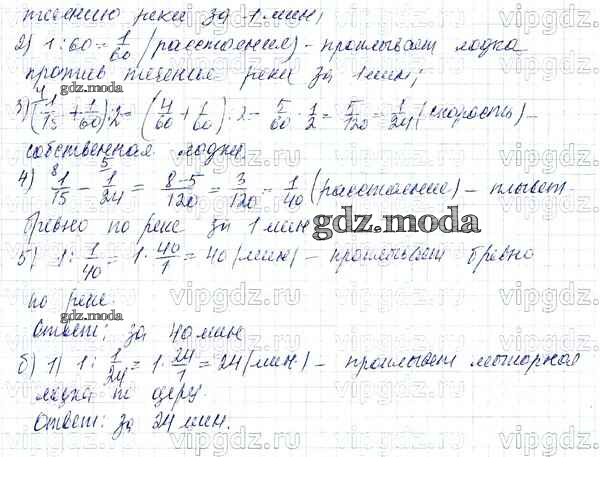 течению реки за 1 мин;
2) 1:60 = 1/60 (расстояния) – проплывает лодка
против течение реки за 1 мин;
3) (1/15 + 1/60):2 = (4/60 + 1/60):2 = 5/60 · 1/2 = 5/120 = 1/24 (скорость) –
собственная лодки
4) 1/15 – 1/24 = 8-5/120 = 3/120 = 1/40 (расстояние) – плывет
бревно по реке за 1 мин
5) 1: 1/40 = 1 · 40/1 = 40 (мин) – проплывает бревно
по реке.
Ответ: за 40 мин
б) 1) 1: 1/24 = 1 · 24/1 = 24 (мин.) – проплывает моторная
лодка по озеру.
Ответ: за 24 мин.
gdz.moda
gdz.moda
gdz.moda
gdz.moda
gdz.moda
vipgdz.ru